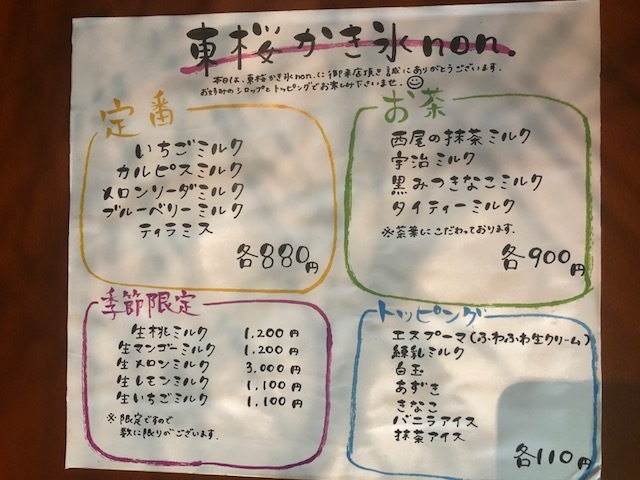 東桜かき氷non.
本日は、東桜かき氷non.に御来店頂き誠にありがとうございます.
お好みのシロップとトッピングでお楽しみ下さいませ.
定番
いちごミルク
カルピスミルク
メロンソーダミルク
ブルーベリーミルク
ティラミス
各880円
お茶
西尾の抹茶ミルク
宇治ミルク
黒みつきなこミルク
タイティーミルク
※茶葉にこだわっております.
各900円
季節限定
生桃ミルク 1,200円
生マンゴーミルク 1,200円
生メロンミルク 3,000円
生レモンミルク 1,100円
生いちごミルク 1,100円
※限定ですので
数に限りがございます.
トッピング
エスプーマ(ふわふわ生クリーム)
練乳ミルク
白玉
あずき
きなこ
バニラアイス
抹茶アイス
各110円